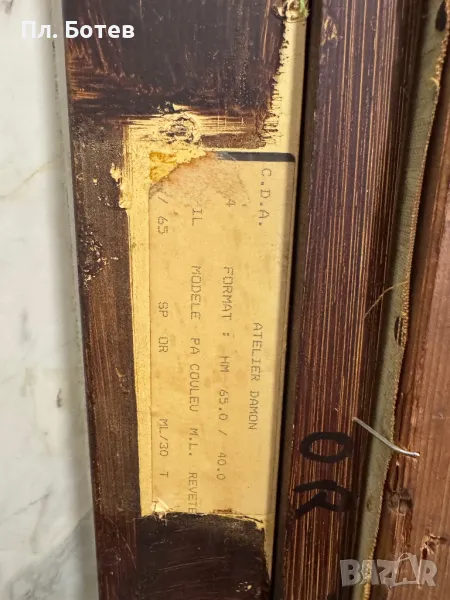 Пл. Ботев
C.D.A. ATELIER DAMON
4 FORMAT : HM 65.0 / 40.0
IL MODELE PA COULEU M.L. REVETE
/ 65 SP OR ML/30 T
OR
BAZAR